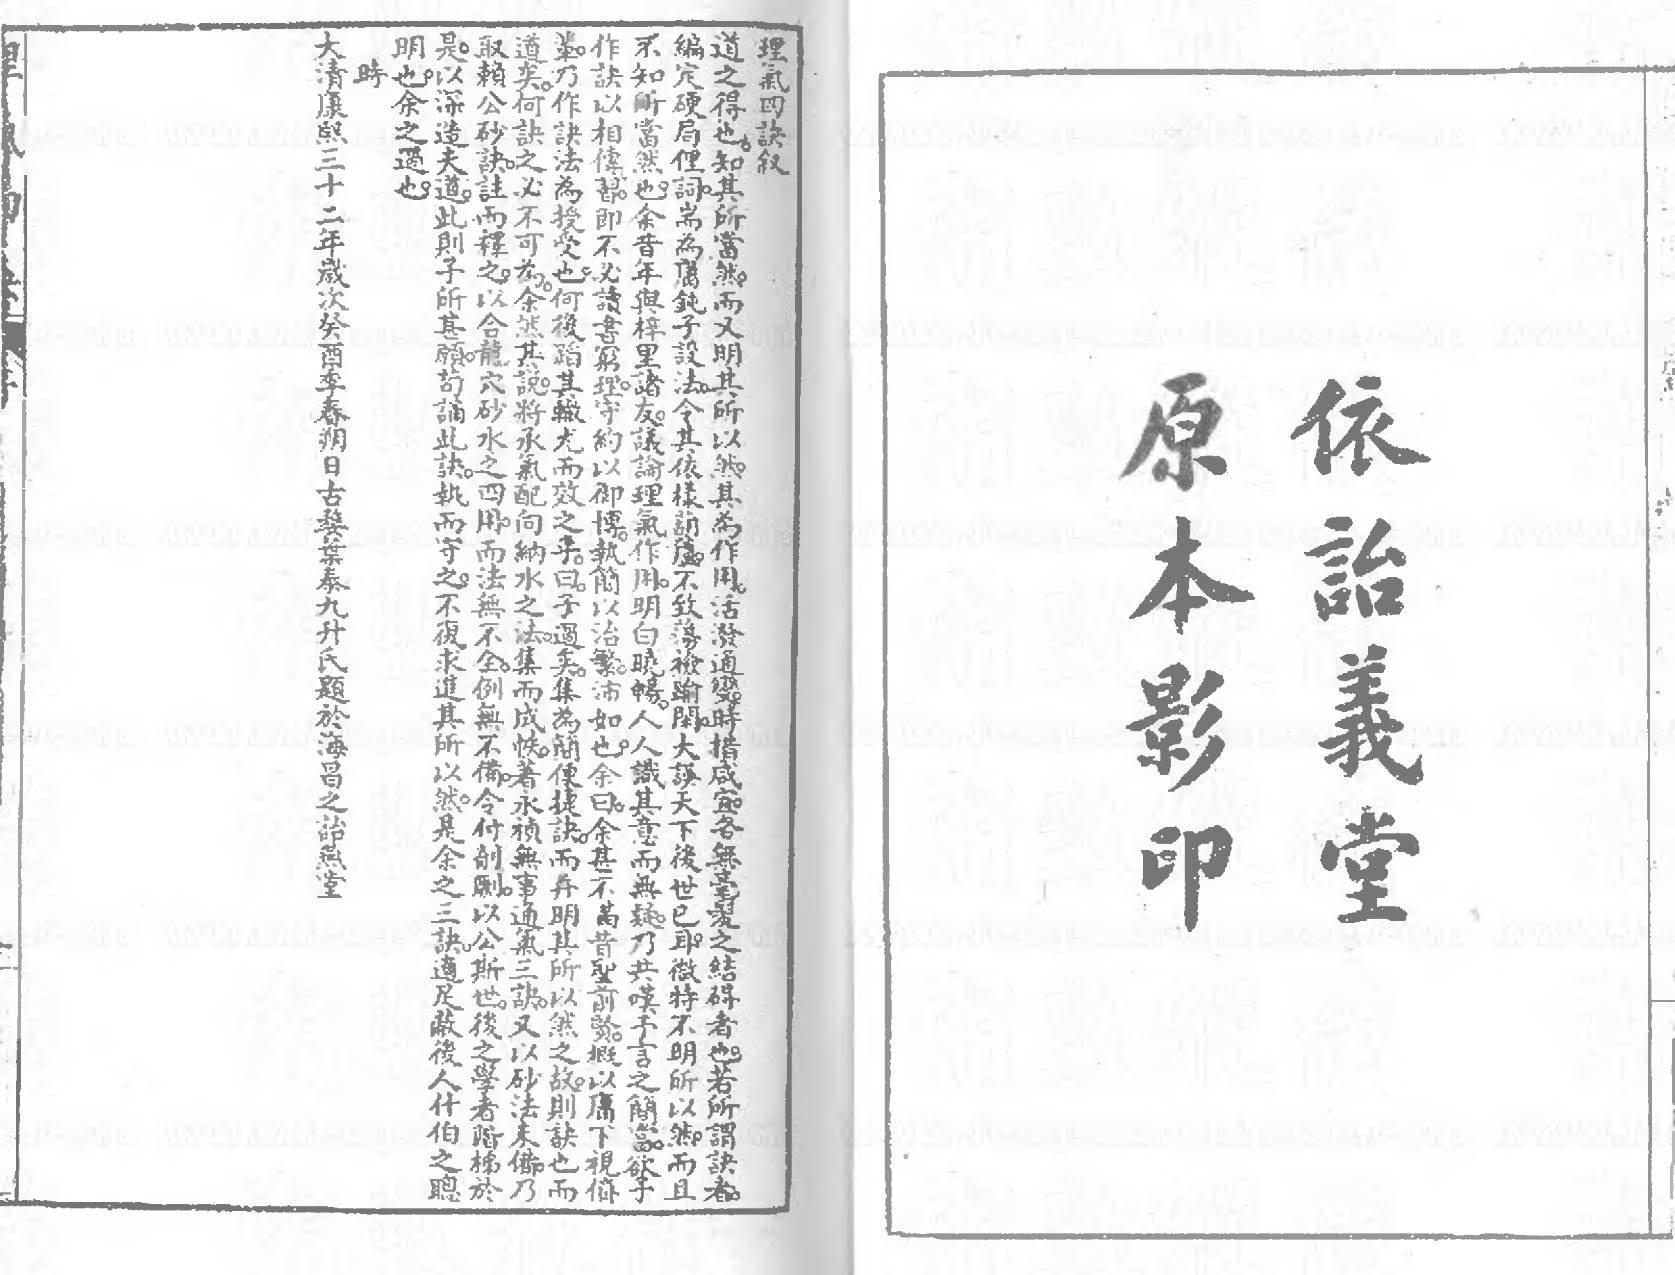 依詒義堂
原本影印
理氣四訣叙
道之得也知其所當然而又明其所以然其為作用活潑通變時措咸宜各無窒礙之結碍者也若所謂訣者
編定硬局俚詞耑為庸鈍子設法令其依樣葫蘆不致蕩檢踰閑大誤天下後世已耳微特不明所以然而且
不知所當然也余昔年與梓里諸友議論理氣作用明白曉暢人人識其意而無疑乃共嘆予言之簡當欲予
作訣以相傳習即不必讀書窮理守約以御博執簡以治繁沛如也余曰余甚不萬昔聖前賢概以庸下視儕
輩乃作訣法為授受也何復蹈其轍尤而效之乎曰子過矣集為簡便捷訣而弁明其所以然之故則訣也而
道矣何訣之必不可友余然其說將承氣配向納水之法集而成帙著永禎無事通氣三訣又以砂法未備乃
取賴公砂訣註而釋之以合龍穴砂水之四用而法無不全例無不備今付剞劂以公斯世後之學者階梯於
是以深造夫道此則予所甚願苟誦此訣執而守之不復求進其所以然是余之三訣適足蔽後人什伯之聰
明也余之過也
時
大清康熙三十二年歲次癸酉季春朔日古婺葉泰九升氏題於海昌之詒燕堂